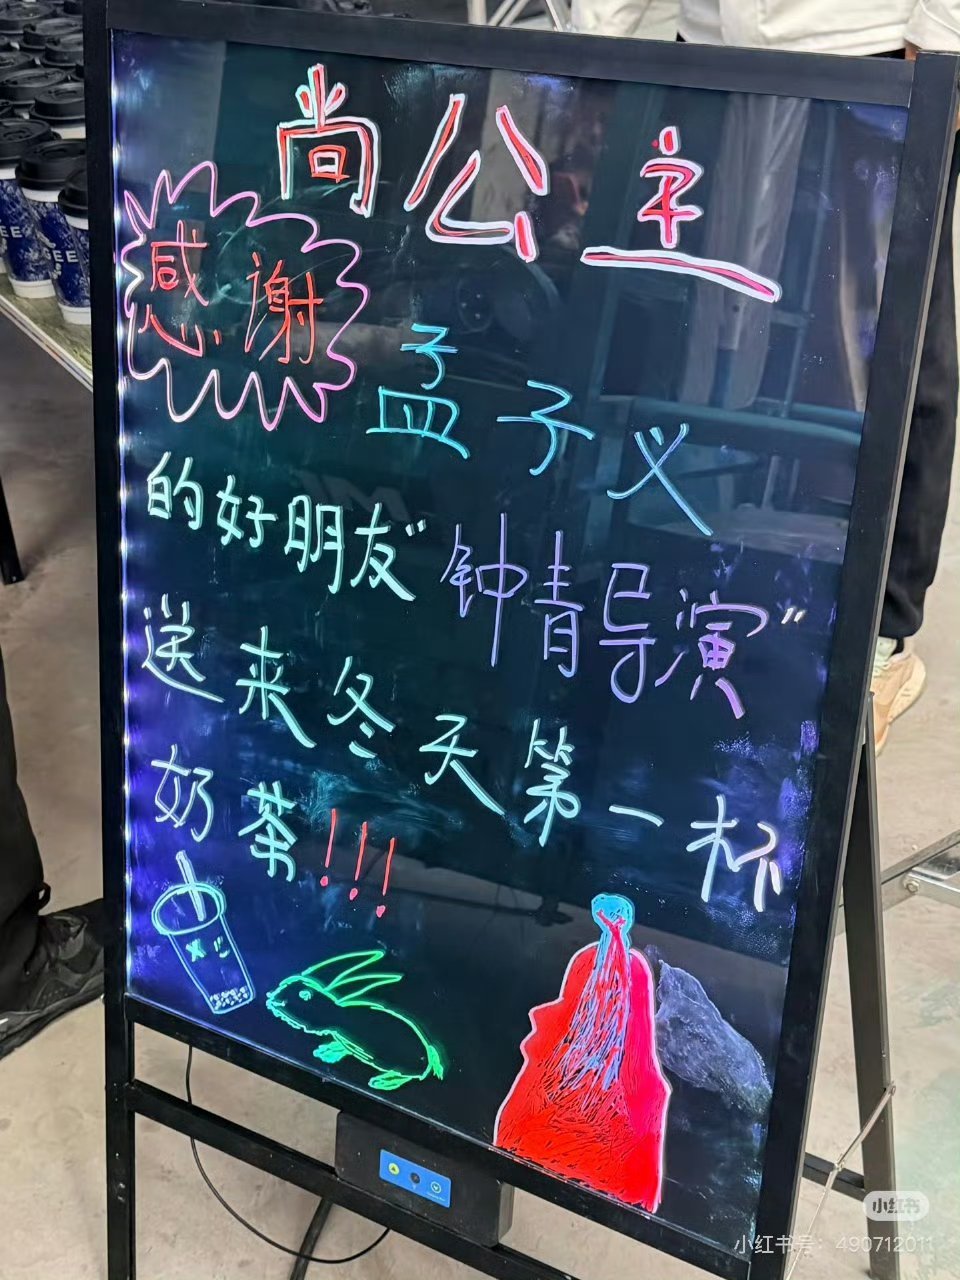 尚公主
感谢
孟子义
的好朋友"钟青导演"
送来冬天第一杯
奶茶!!!
小红书
小红书号：490712011